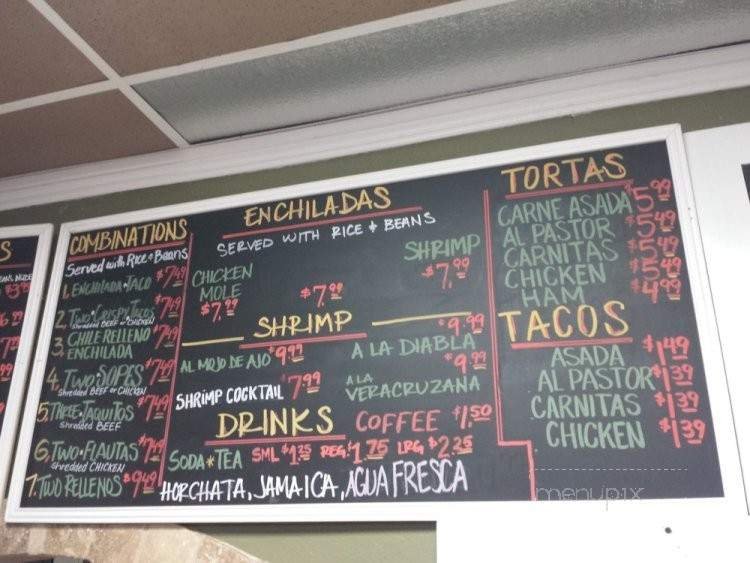 COMBINATIONS
Served with Rice & Beans
1. ENCHILADA & TACO $7.49
2. TWO CRISPY TACOS $7.49
Shredded BEEF or CHICKEN
3. CHILE RELLENO & ENCHILADA $7.49
4. TWO SOPES $7.49
Shredded BEEF or CHICKEN
5. THREE TAQUITOS $7.49
Shredded BEEF
6. TWO FLAUTAS $7.49
Shredded CHICKEN
7. TWO RELLENOS $9.49
ENCHILADAS
SERVED WITH RICE & BEANS
CHICKEN MOLE $7.99
$7.99
SHRIMP $7.99
SHRIMP
AL MOJO DE AJO $9.99
A LA DIABLA $9.99
SHRIMP COCKTAIL $7.99
A LA VERACRUZANA $9.99
DRINKS
COFFEE $1.50
SODA * TEA SML $1.25 REG. $1.75 LRG $2.25
HORCHATA, JAMAICA, AGUA FRESCA
TORTAS
CARNE ASADA $5.99
AL PASTOR $5.49
CARNITAS $5.49
CHICKEN $5.49
HAM $4.99
TACOS
ASADA $1.49
AL PASTOR $1.39
CARNITAS $1.39
CHICKEN $1.39
menupix